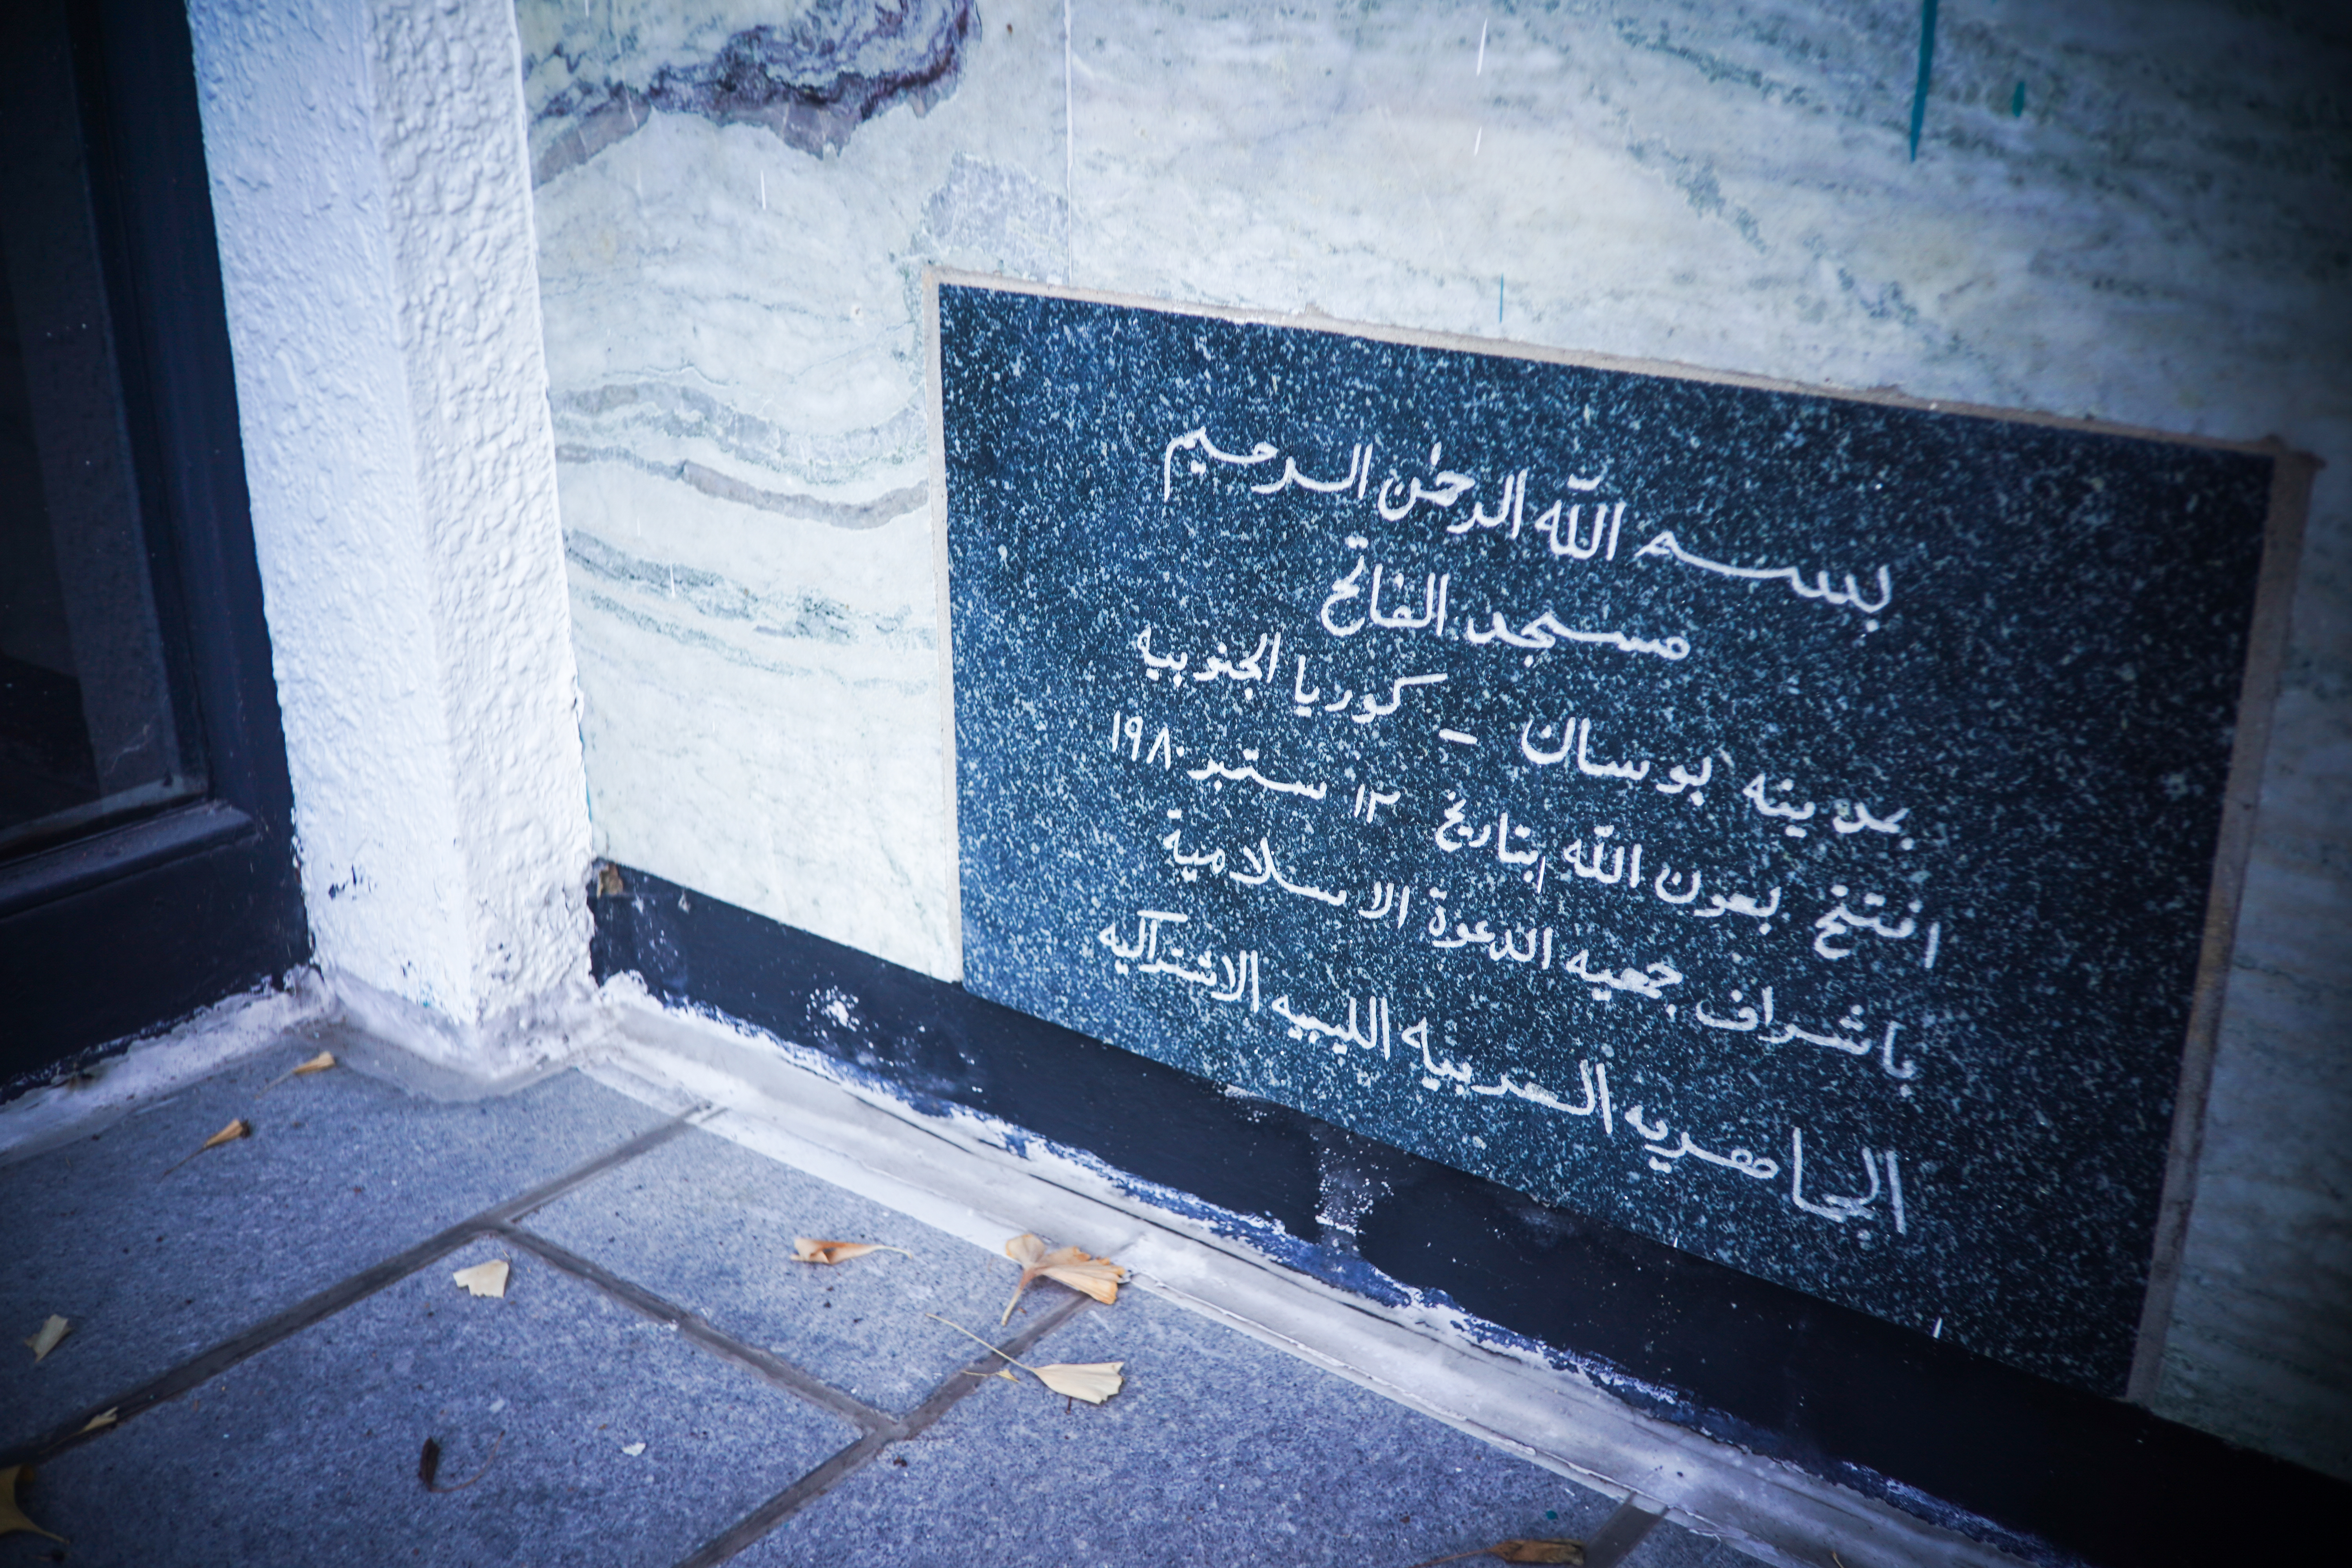 بسم الله الرحمٰن الرحيم
مسجد الفاتح
بمدينه بوسان - كوريا الجنوبيه
افتتح بعون الله بتاريخ ١٢ ستمبر ١٩٨٠
باشراف جمعيه الدعوة الاسلامية
الجاهريه العربيه الليبيه الاشتراكيه